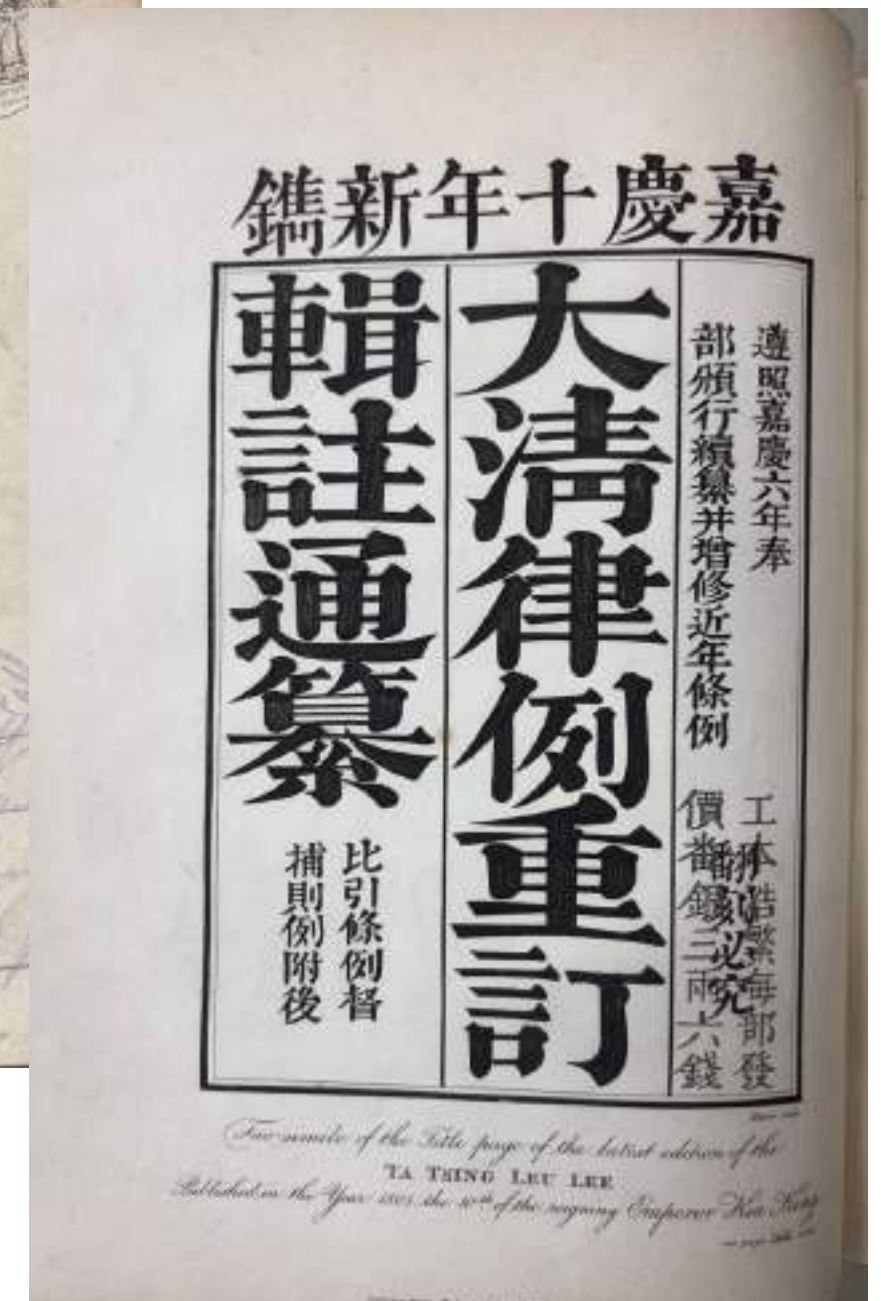 嘉慶十年新鐫
遵照嘉慶六年奉
部頒行續纂并增修近年條例
工本浩繁每部發
價番銀三兩六錢
翻刻必究
大清律例重訂
輯註通纂
比引條例督
捕則例附後
Fac-simile of the Title page of the latest edition of the
TA TSING LEU LEE
Published in the Year 1805 the 10th of the reigning Emperor Kia King